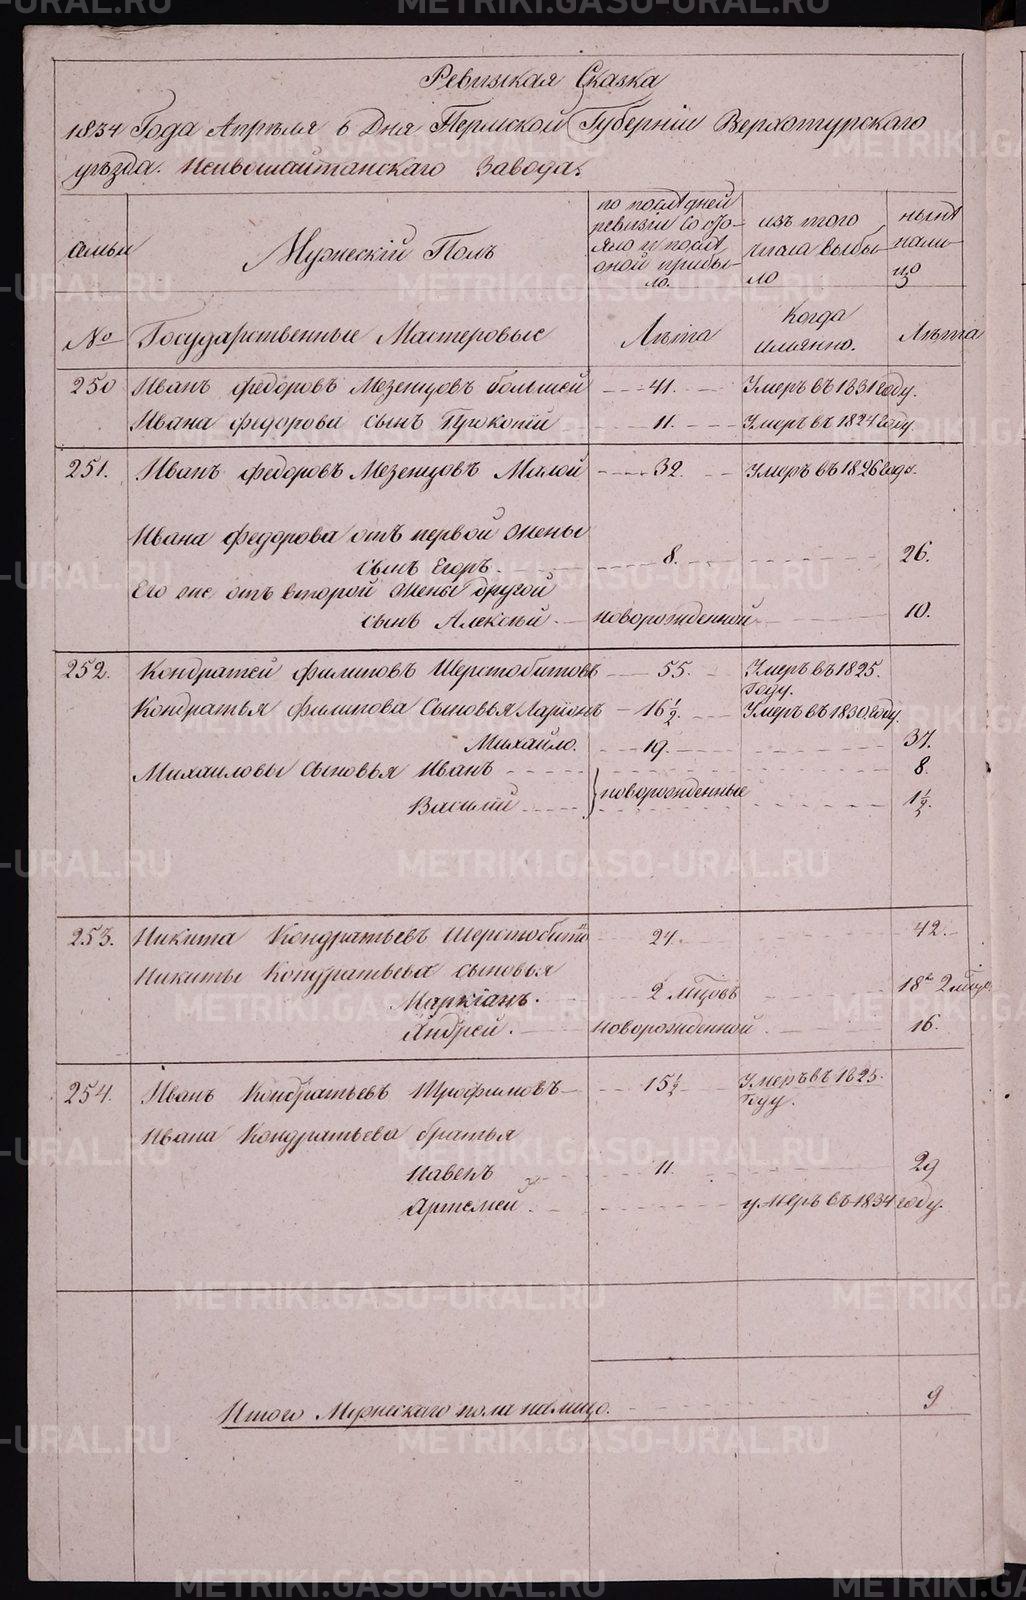 Ревизская Сказка
1834 Года Апреля 6 Дня Пермской Губернии Верхотурскаго
уезда. Невьошайтанскаго Завода.
семьи
Мужескiй Полъ
по последней ревизiи состояло и после оной прибыло.
изъ того числа выбыло
ныне налицо
№
Государственные Мастеровые
Лета
Когда имянно.
Лета
250 Иванъ Федоровъ Мезенцовъ большей 41. Умеръ въ 1831 году.
Ивана Федорова сынъ Прокопiй 11. Умеръ въ 1824 году.
251. Иванъ Федоровъ Мезенцовъ Малой 32. Умеръ въ 1826 году.
Ивана Федорова отъ первой жены
сынъ Егоръ. 8. 26.
Его же отъ второй жены другой
сынъ Алексей. новорожденной 10.
252. Кондратей Филиповъ Шерстобитовъ 55. Умеръ въ 1825.
году.
Кондратья Филипова сыновья Ларiонъ 16 1/2. Умеръ въ 1830 году.
Михайло. 19. 37.
Михайловы сыновья Иванъ 8.
новорожденные
Василiй 1 1/2.
253. Никита Кондратьевъ Шерстобитовъ 24. 42.
Никиты Кондратьева сыновья
Маркiанъ. 2 м̃цовъ 18 ть 2 м̃цов
Андрей. новорожденной. 16.
254. Иванъ Кондратьевъ Трофимовъ 15 1/2 Умеръ въ 1825.
году.
Ивана Кондратьева братья
Павелъ 11. 29
Артемей. умеръ въ 1834 году.
Итого Мужескаго пола налицо. 9
METRIKI.GASO-URAL.RU